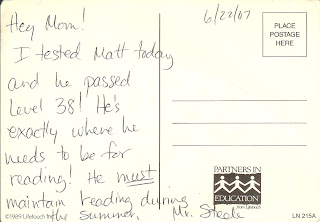 Hey Mom!
6/22/07
I tested Matt today
and he passed
Level 38! He's
exactly where he
needs to be for
reading! He must
maintain reading during
the summer, Mr. Steele
PLACE
POSTAGE
HERE
PARTNERS IN
EDUCATION
from Lifetouch
©1989 Lifetouch
LN 215A